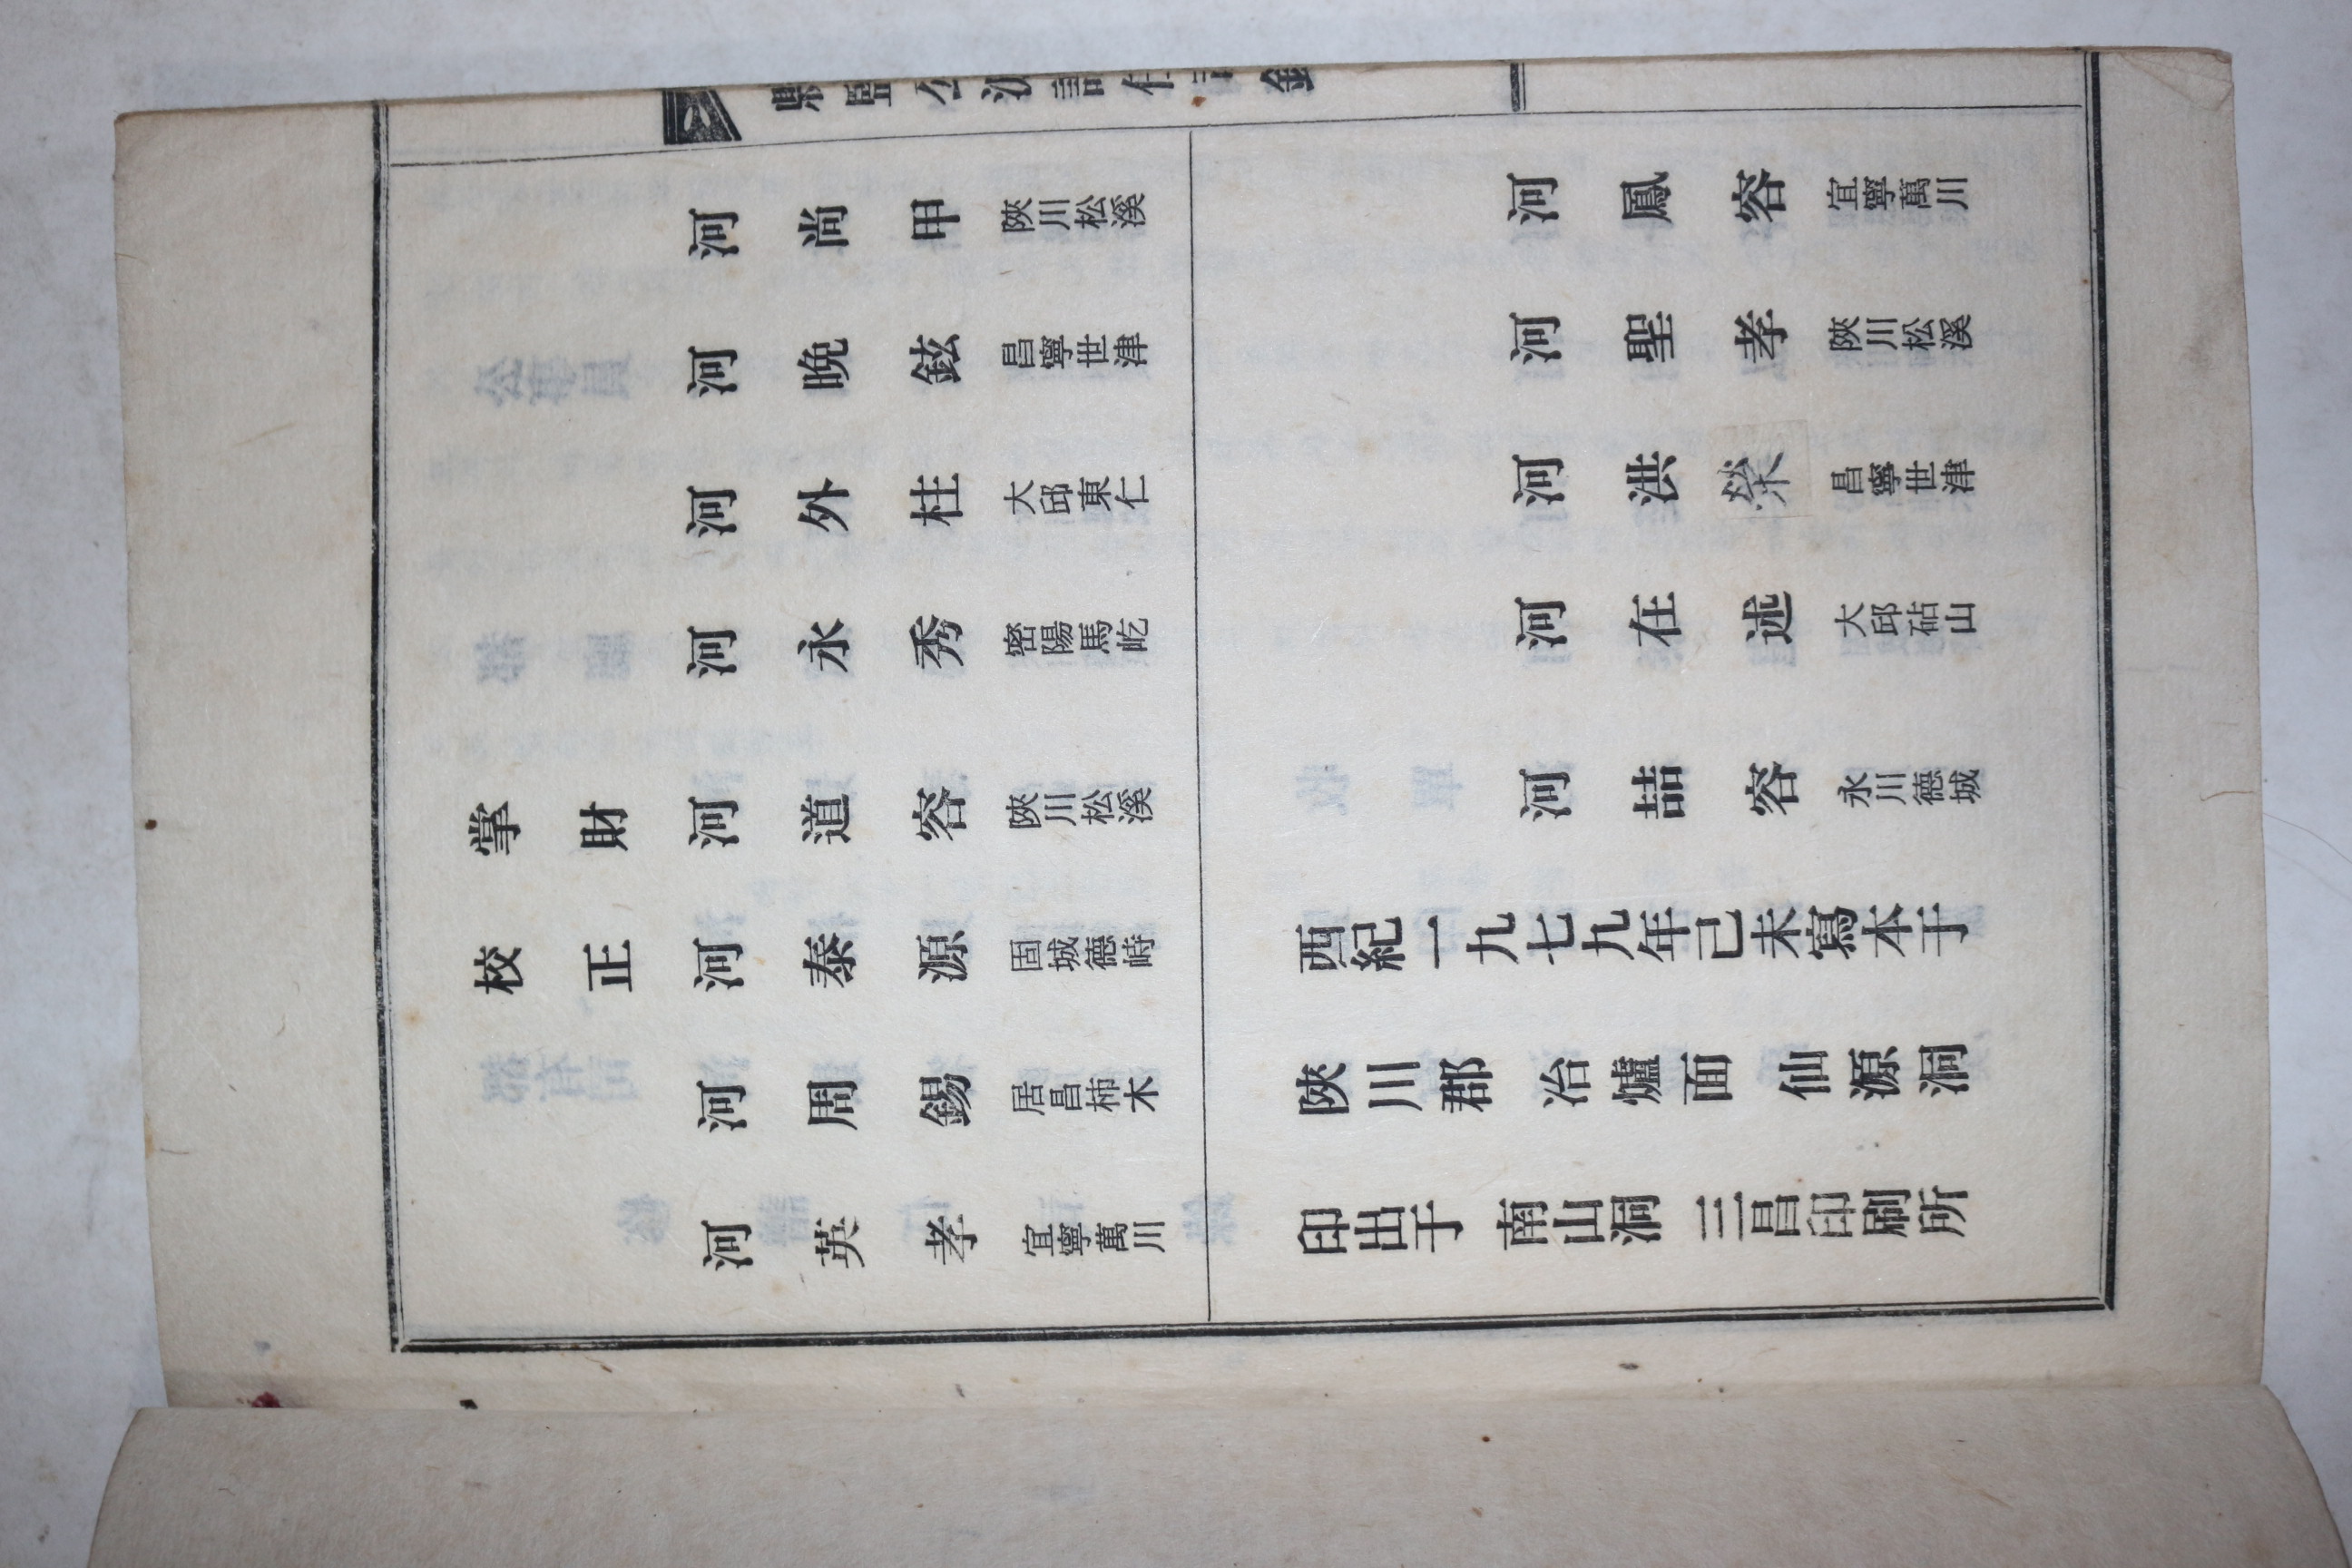 河尚甲 陜川松溪
河晩鉉 昌寧世津
河外柱 大邱東仁
河永秀 密陽馬屹
掌財 河道容 陜川松溪
校正 河泰源 固城德峙
河周錫 居昌柿木
河英孝 宜寧萬川
河鳳容 宜寧萬川
河聖孝 陜川松溪
河洪榮 昌寧世津
河在述 大邱砧山
河喆容 永川德城
西紀一九七九年己未寫本于
陜川郡 冶爐面 仙源洞
印出于 南山洞 三昌印刷所